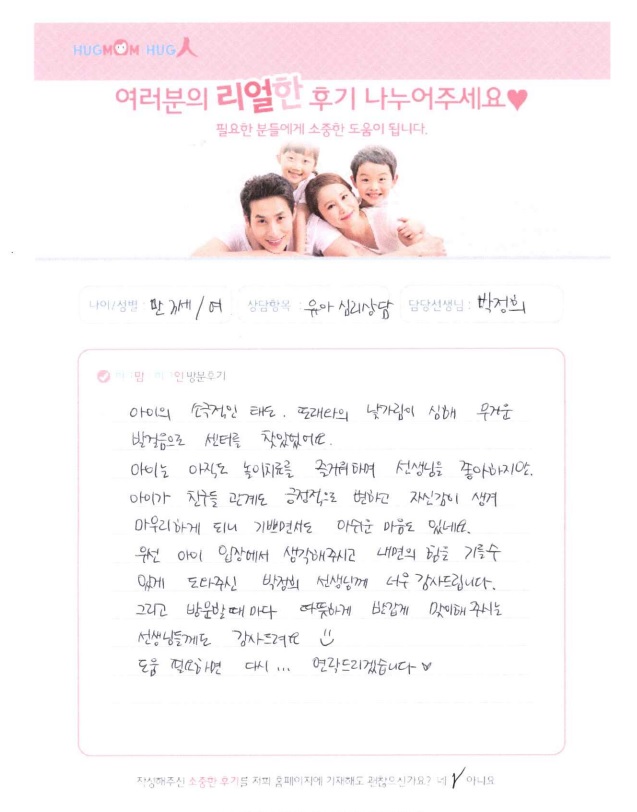 HUGMOM HUG人
여러분의 리얼한 후기 나누어주세요♥
필요한 분들에게 소중한 도움이 됩니다.
나이/성별 : 만 7세 / 여 상담항목 : 유아 심리상담 담당선생님 : 박정희
맘 인 방문후기
아이의 소극적인 태도. 또래와의 낯가림이 심해 무거운
발걸음으로 센터를 찾았었어요.
아이는 아직도 놀이치료를 즐거워하며 선생님을 좋아하지만.
아이가 친구들 관계도 긍정적으로 변하고 자신감이 생겨
마무리하게 되니 기쁘면서도 아쉬운 마음도 있네요.
우선 아이 입장에서 생각해주시고 내면의 힘을 기를수
있게 도와주신 박정희 선생님께 너무 감사드립니다.
그리고 방문할때 마다 따뜻하게 반갑게 맞이해 주시는
선생님들께도 감사드려요
도움 필요하면 다시 ... 연락드리겠습니다 ♥
작성해주신 소중한 후기를 저희 홈페이지에 기재해도 괜찮으신가요? 네 √ 아니요